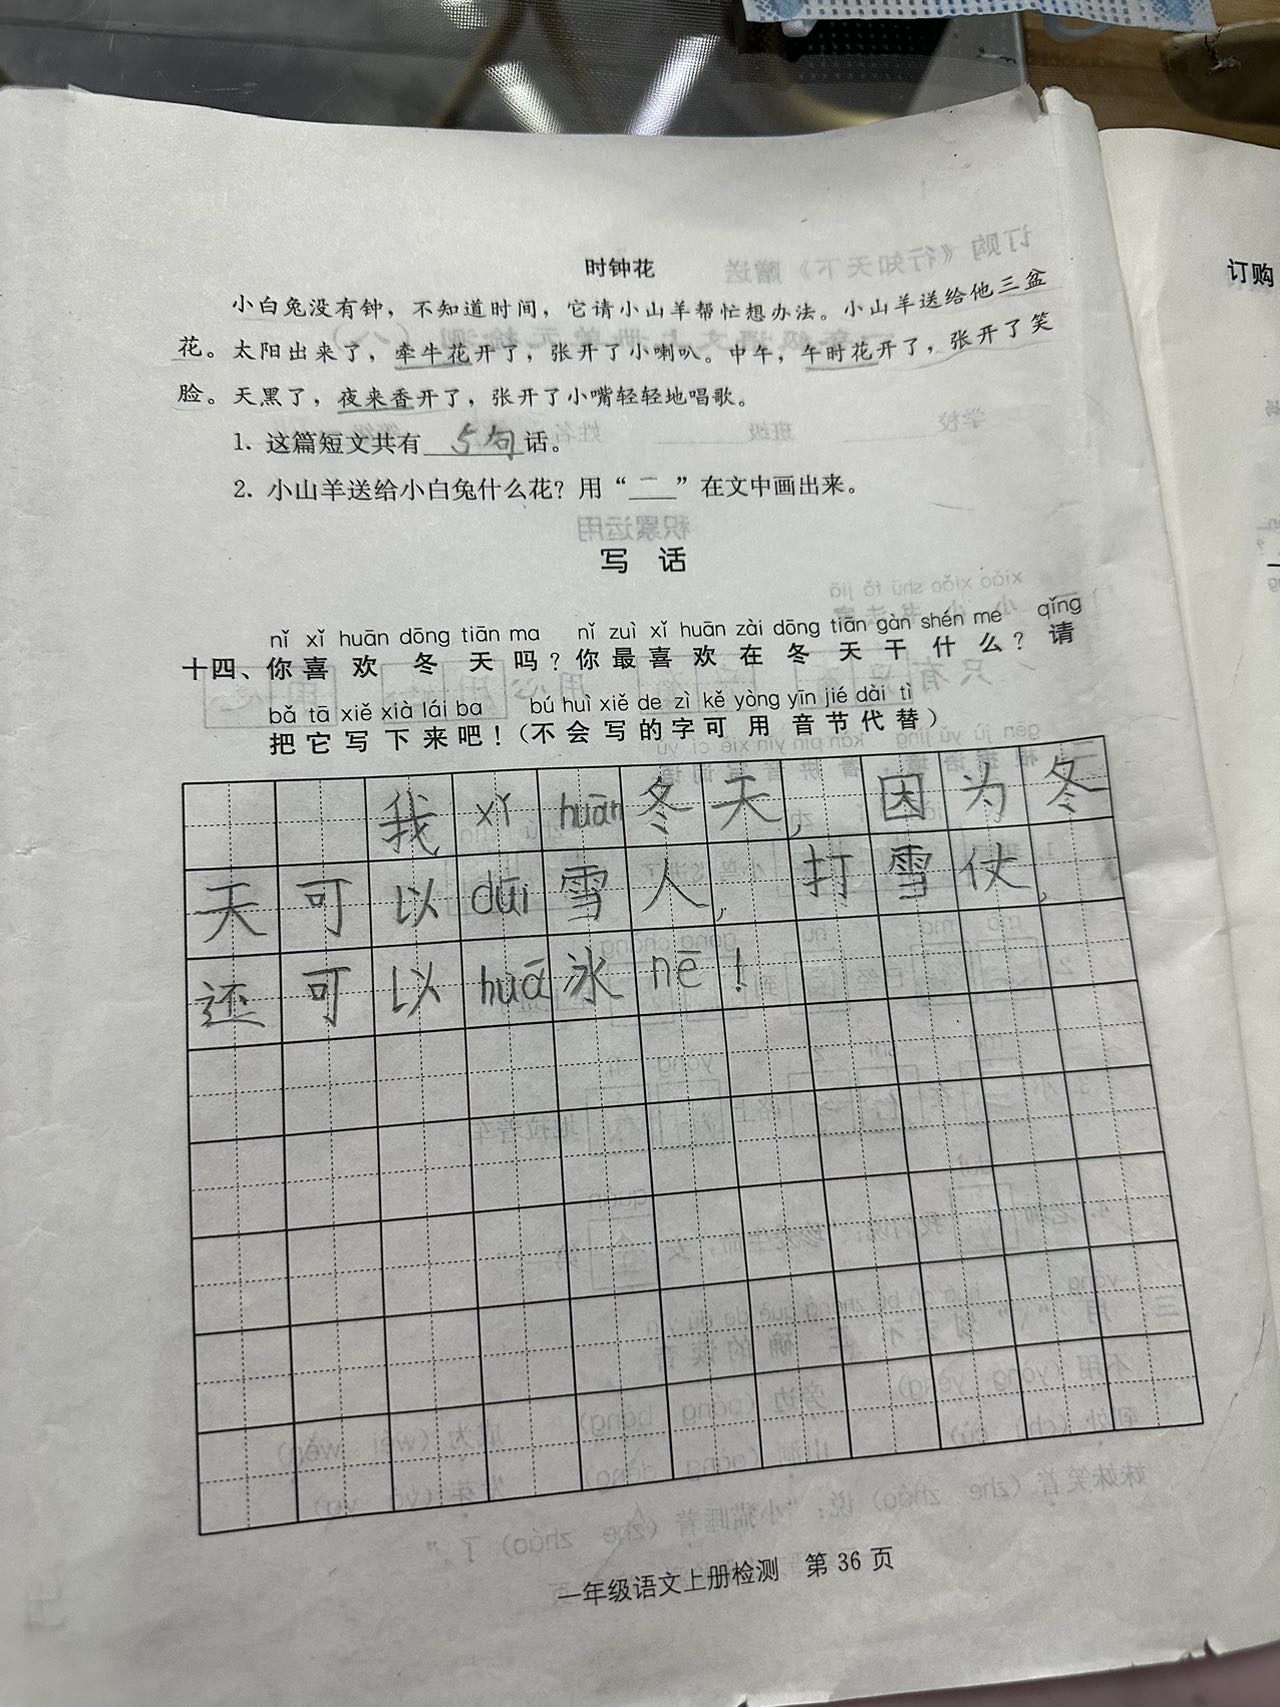 时钟花
小白兔没有钟，不知道时间，它请小山羊帮忙想办法。小山羊送给他三盆
花。太阳出来了，牵牛花开了，张开了小喇叭。中午，午时花开了，张开了笑
脸。天黑了，夜来香开了，张开了小嘴轻轻地唱歌。
1. 这篇短文共有5句话。
2. 小山羊送给小白兔什么花？用“＿”在文中画出来。
写 话
nǐ xǐ huān dōng tiān ma nǐ zuì xǐ huān zài dōng tiān gàn shén me qǐng
十四、你喜欢冬天吗？你最喜欢在冬天干什么？请
bǎ tā xiě xià lái ba bú huì xiě de zì kě yòng yīn jié dài tì
把它写下来吧！（不会写的字可用音节代替）
我xǐ huān冬天，因为冬
天可以duī雪人，打雪仗，
还可以huá冰nē！
一年级语文上册检测 第36页
订购